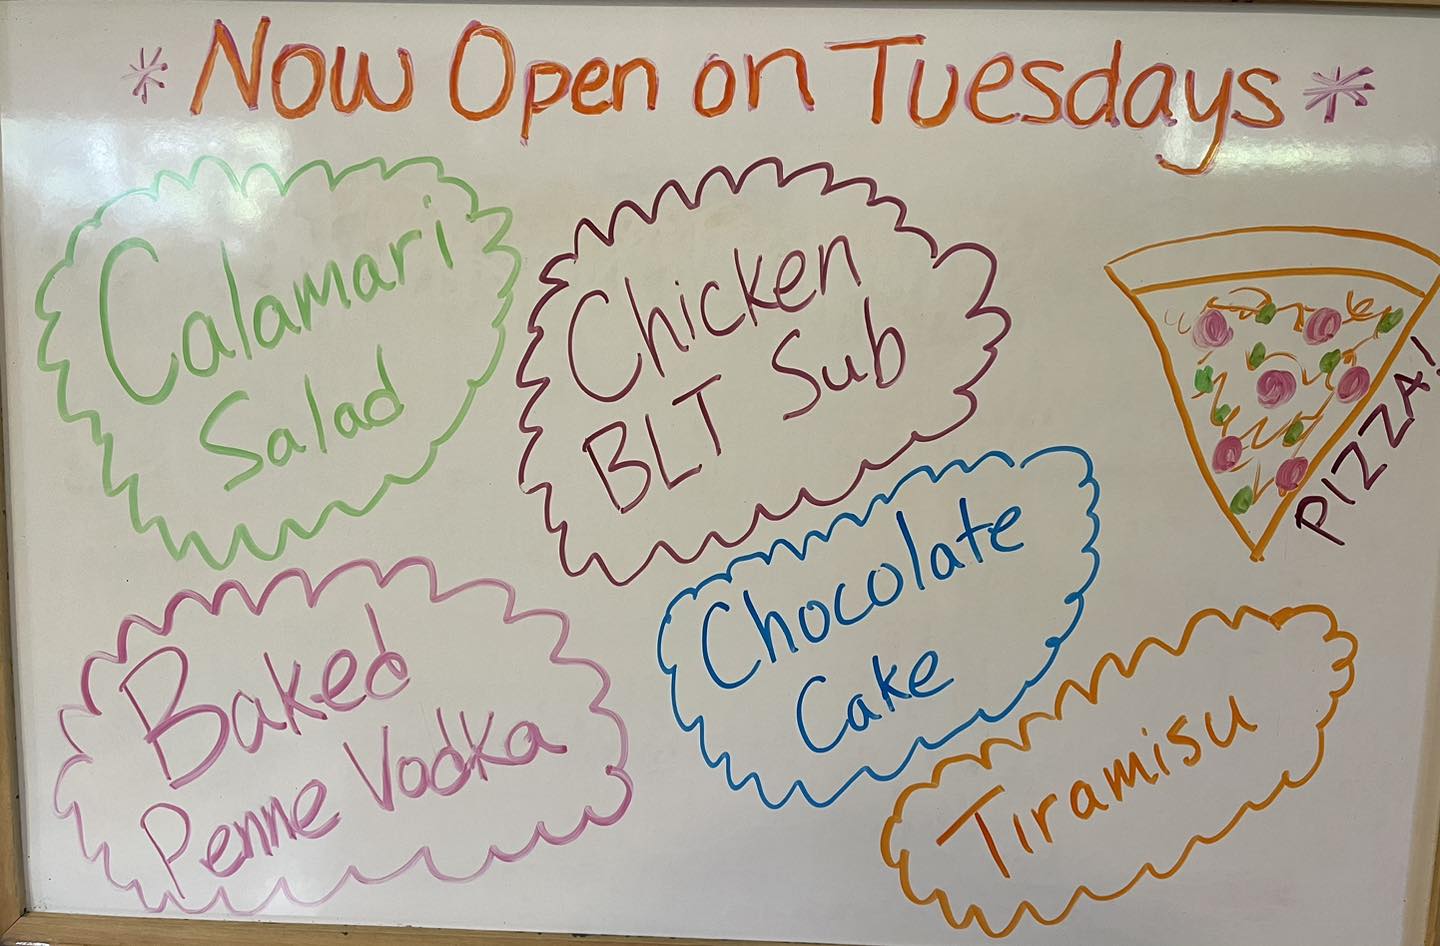 * Now Open on Tuesdays *
Calamari
Salad
Chicken
BLT Sub
PIZZA!
Baked
Penne Vodka
Chocolate
Cake
Tiramisu